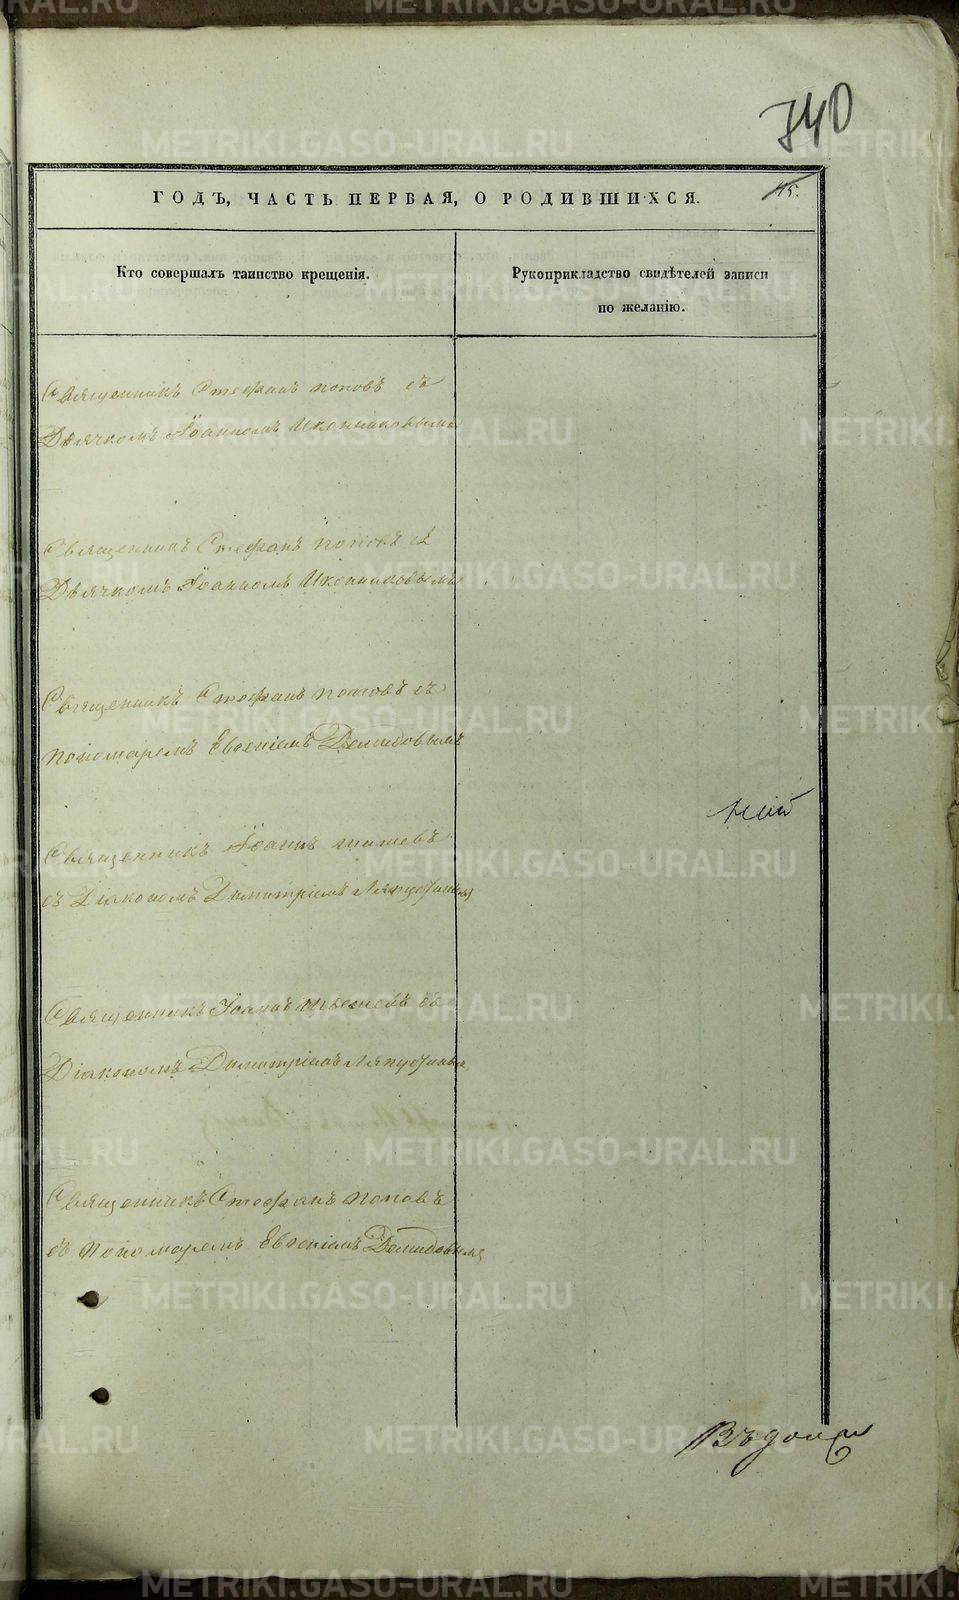 740
ГОДЪ, ЧАСТЬ ПЕРВАЯ, О РОДИВШИХСЯ.
45.
Кто совершалъ таинство крещенія.
Рукоприкладство свидѣтелей записи
по желанію.
Священникъ Стефанъ Поповъ съ
Дьячкомъ Іоанномъ Иконниковымъ
Священникъ Стефанъ Поповъ съ
Дьячкомъ Іоанномъ Иконниковымъ
Священникъ Стефанъ Поповъ съ
пономаремъ Евгеніемъ Демидовымъ
Священникъ Іоаннъ
съ Діакономъ Димитріемъ
Священникъ Іоаннъ съ
Діакономъ Димитріемъ
Священникъ Стефанъ Поповъ
съ Пономаремъ Евгеніемъ Демидовымъ
METRIKI.GASO-URAL.RU